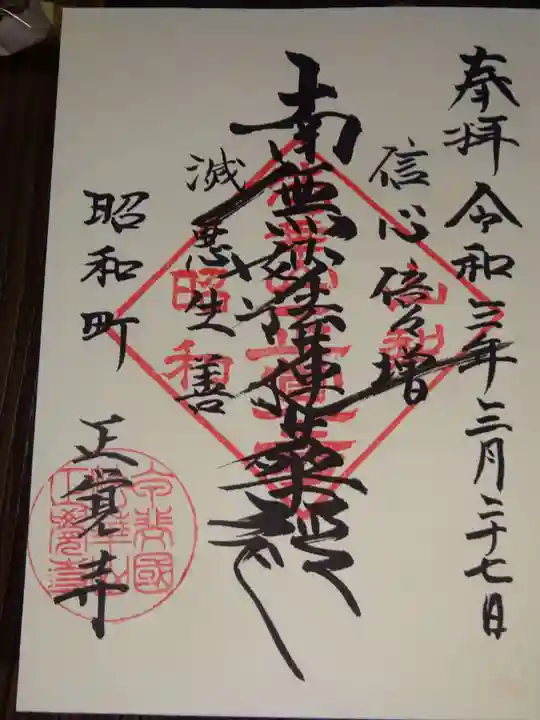 奉拝 令和三年三月二十七日
信心倍々増
南無妙法蓮華経
滅悪生善
昭和町 正覚寺
昭和
甲斐國